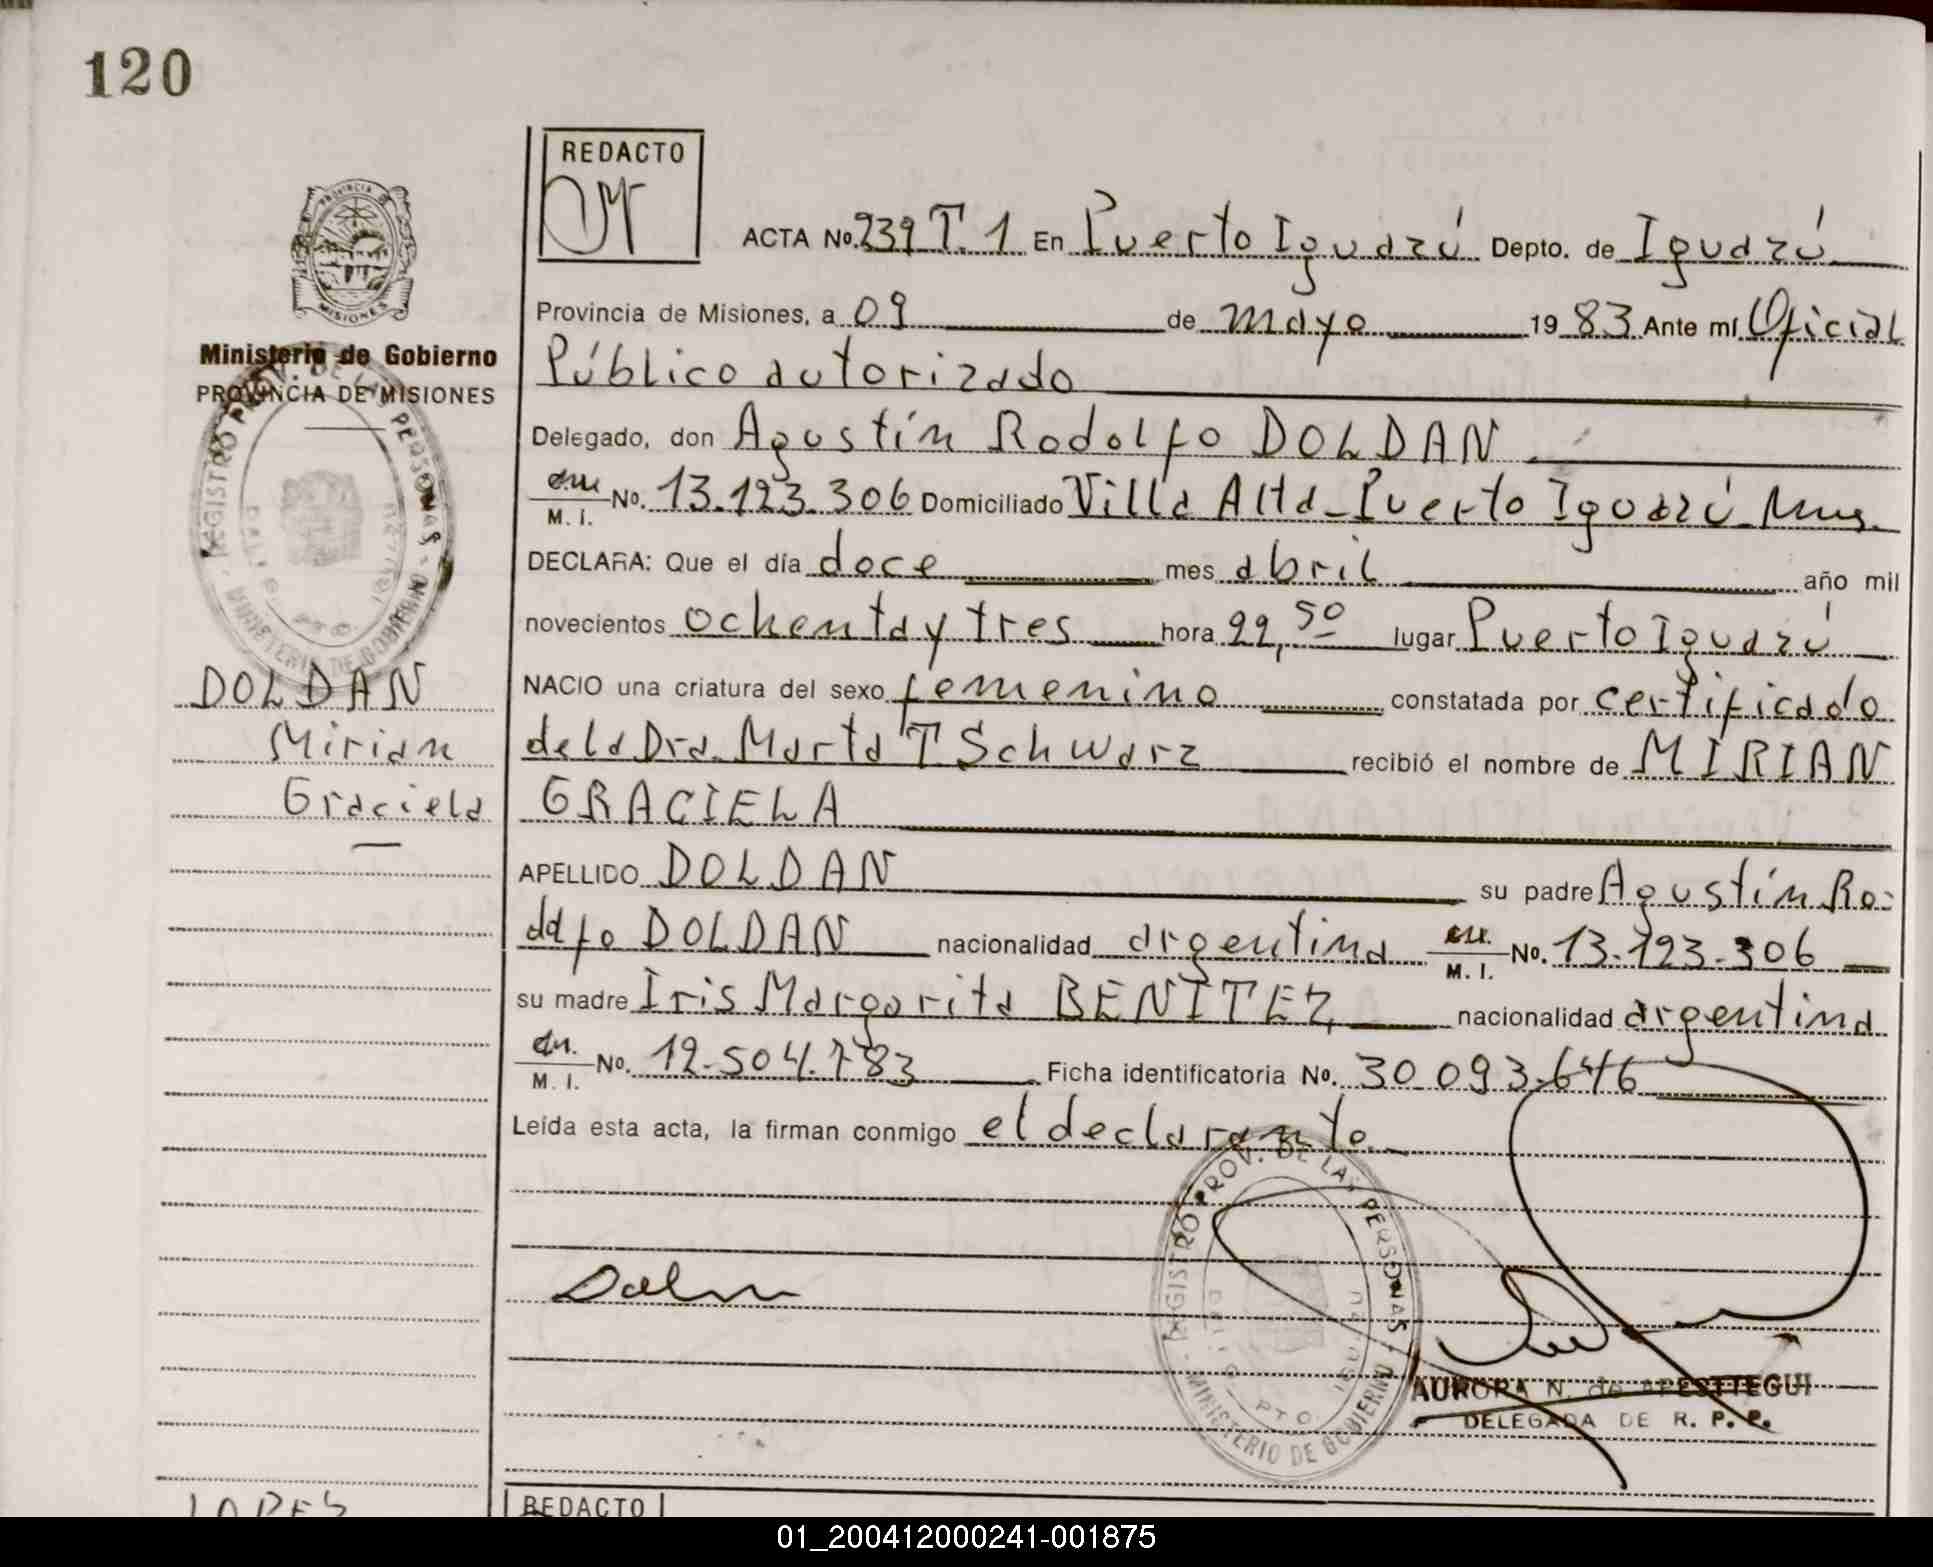 120
REDACTO
PROVINCIA DE
MISIONES
ACTA No. 239 T. 1 En Puerto Iguazú Depto. de Iguazú
Provincia de Misiones, a 09 de mayo 19 83 Ante mí Oficial
Ministerio de Gobierno
PROVINCIA DE MISIONES
Público autorizado
Delegado, don Agustín Rodolfo DOLDAN
M. I. No. 13.123.306 Domiciliado Villa Alta - Puerto Iguazú
REGISTRO PROV. DE LAS PERSONAS - MINISTERIO DE GOBIERNO
DECLARA: Que el día doce mes abril año mil
novecientos ochenta y tres hora 22,50 lugar Puerto Iguazú
DOLDAN
Mirian
Graciela
NACIO una criatura del sexo femenino constatada por certificado
de la Dra. Marta T Schwarz recibió el nombre de MIRIAN
GRACIELA
APELLIDO DOLDAN su padre Agustín Ro-
dolfo DOLDAN nacionalidad argentina M. I. No. 13.123.306
su madre Iris Margarita BENITEZ, nacionalidad argentina
M. I. No. 12.504.783 Ficha identificatoria No. 30.093.646
Leída esta acta, la firman conmigo el declarante.
REGISTRO PROV. DE LAS PERSONAS - MINISTERIO DE GOBIERNO
AURORA N. de APESTTEGUI
DELEGADA DE R. P. P.
REDACTO
01_200412000241-001875